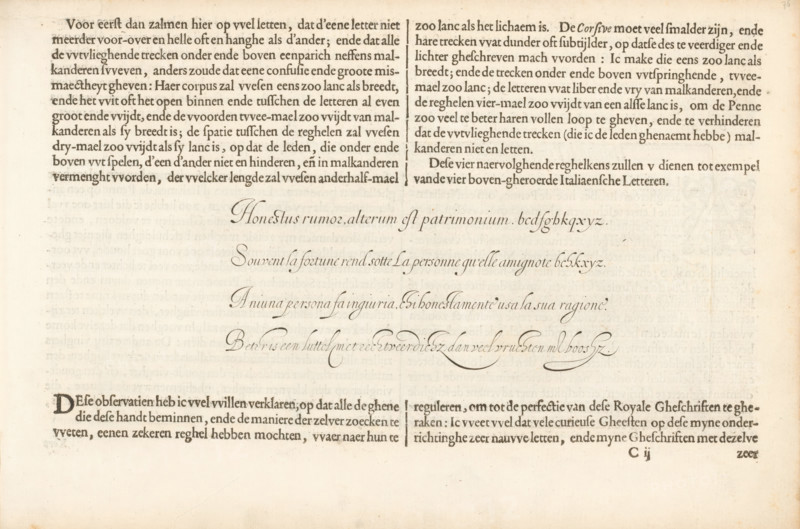 Voor eerst dan zalmen hier op vvel letten, dat d'eene letter niet
meerder voor-over en helle oft en hanghe als d'ander; ende dat alle
de vvtvlieghende trecken onder ende boven eenparich neffens mal-
kanderen svveven, anders zoude dat eene confusie ende groote mis-
maectheyt gheven: Haer corpus zal vvesen eens zoo lanc als breedt,
ende het vvit oft het open binnen ende tusschen de letteren al even
groot ende vvijdt, ende de vvoorden tvvee-mael zoo vvijdt van mal-
kanderen als sy breedt is; de spatie tusschen de reghelen zal vvesen
dry-mael zoo vvijdt als sy lanc is, op dat de leden, die onder ende
boven vvt spelen, d'een d'ander niet en hinderen, eñ in malkanderen
vermenght vvorden, der vvelcker lengde zal vvesen anderhalf-mael
zoo lanc als het lichaem is. De Corsive moet veel smalder zijn, ende
hare trecken vvat dunder oft subtijlder, op datse des te veerdiger ende
lichter gheschreven mach vvorden: Ic make die eens zoo lanc als
breedt; ende de trecken onder ende boven vvtspringhende, tvvee-
mael zoo lanc; de letteren vvat liber ende vry van malkanderen, ende
de reghelen vier-mael zoo vvijdt van een alsse lanc is, om de Penne
zoo veel te beter haren vollen loop te gheven, ende te verhinderen
dat de vvtvlieghende trecken (die ic de leden ghenaemt hebbe) mal-
kanderen niet en letten.
Dese vier naervolghende reghelkens zullen v dienen tot exempel
vande vier boven-gheroerde Italiaensche Letteren.
Honestus rumor, alterum est patrimonium. bcdfghkqxyz.
Souvent la fortune rend sotte La personne qu'elle amignote behkxyz.
A niuna persona fa ingiuria, chi honestamente usa la sua ragione.
Beter is een luttel met rechtveerdichz, dan veel vruchten mz booshz.
DEse observatien heb ic vvel vvillen verklaren, op dat alle de ghene
die dese handt beminnen, ende de maniere der zelver zoecken te
vveten, eenen zekeren reghel hebben mochten, vvaer naer hun te
reguleren, om tot de perfectie van dese Royale Gheschriften te ghe-
raken: Ic vveet vvel dat vele curieuse Gheesten op dese myne onder-
richtinghe zeer nauvve letten, ende myne Gheschriften met dezelve
C ij zeer